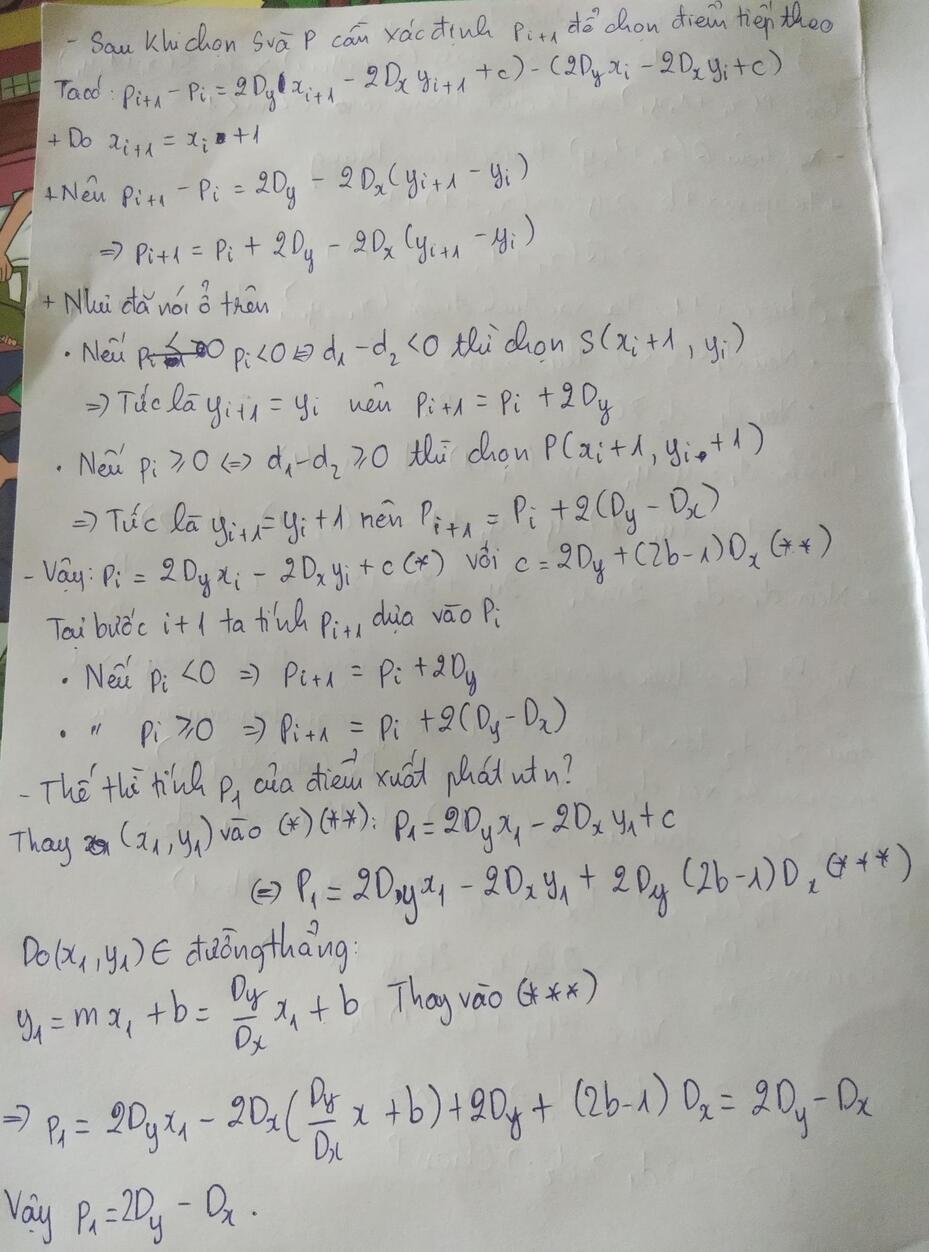 - Sau khi chọn S và P cần xác định Pi+1 để chọn điểm tiếp theo
Ta có: Pi+1 - Pi = 2Dy xi+1 - 2Dx yi+1 + c) - (2Dy xi - 2Dx yi + c)
+ Do xi+1 = xi + 1
+ Nên Pi+1 - Pi = 2Dy - 2Dx(yi+1 - yi)
=> Pi+1 = Pi + 2Dy - 2Dx(yi+1 - yi)
+ Như đã nói ở trên
. Nếu pi<0 ⇔ d1 - d2 <0 thì chọn S(xi+1, yi)
=> Tức là yi+1 = yi nên Pi+1 = Pi + 2Dy
. Nếu pi ⩾0 <=> d1-d2 ⩾0 thì chọn P(xi+1, yi+1)
=> Tức là yi+1=yi+1 nên Pi+1 = Pi + 2(Dy - Dx)
- Vậy: Pi = 2Dy xi - 2Dx yi + c (*) với c = 2Dy + (2b-1)Dx (**)
Tại bước i+1 ta tính Pi+1 dựa vào Pi
. Nếu pi <0 => Pi+1 = Pi + 2Dy
. " pi ⩾0 => Pi+1 = Pi + 2(Dy-Dx)
- Thế thì tính P1 của điểm xuất phát ntn?
Thay (x1,y1) vào (*)(**): P1 = 2Dy x1 - 2Dx y1 + c
(=) P1 = 2Dy x1 - 2Dx y1 + 2Dy (2b-1)Dx (***)
Do(x1,y1) ∈ đường thẳng:
y1 = mx1 + b = Dy/Dx x1 + b Thay vào (***)
=> P1 = 2Dy x1 - 2Dx(Dy/Dx x + b) + 2Dy + (2b-1) Dx = 2Dy - Dx
Vậy P1=2Dy - Dx.